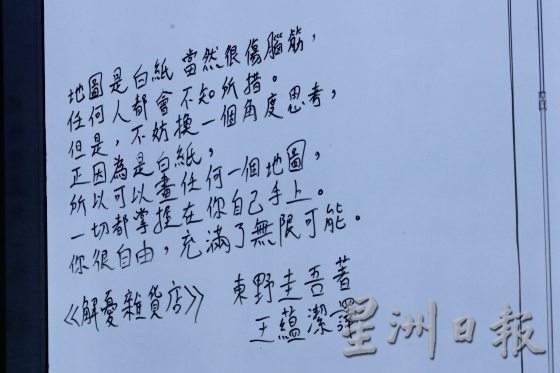 地圖是白紙當然很傷腦筋，
任何人都會不知所措。
但是，不妨換一個角度思考，
正因為是白紙，
所以可以畫任何一個地圖，
一切都掌握在你自己手上。
你很自由，充滿了無限可能。
《解憂雜貨店》 東野圭吾著
王蘊潔譯
星洲日報